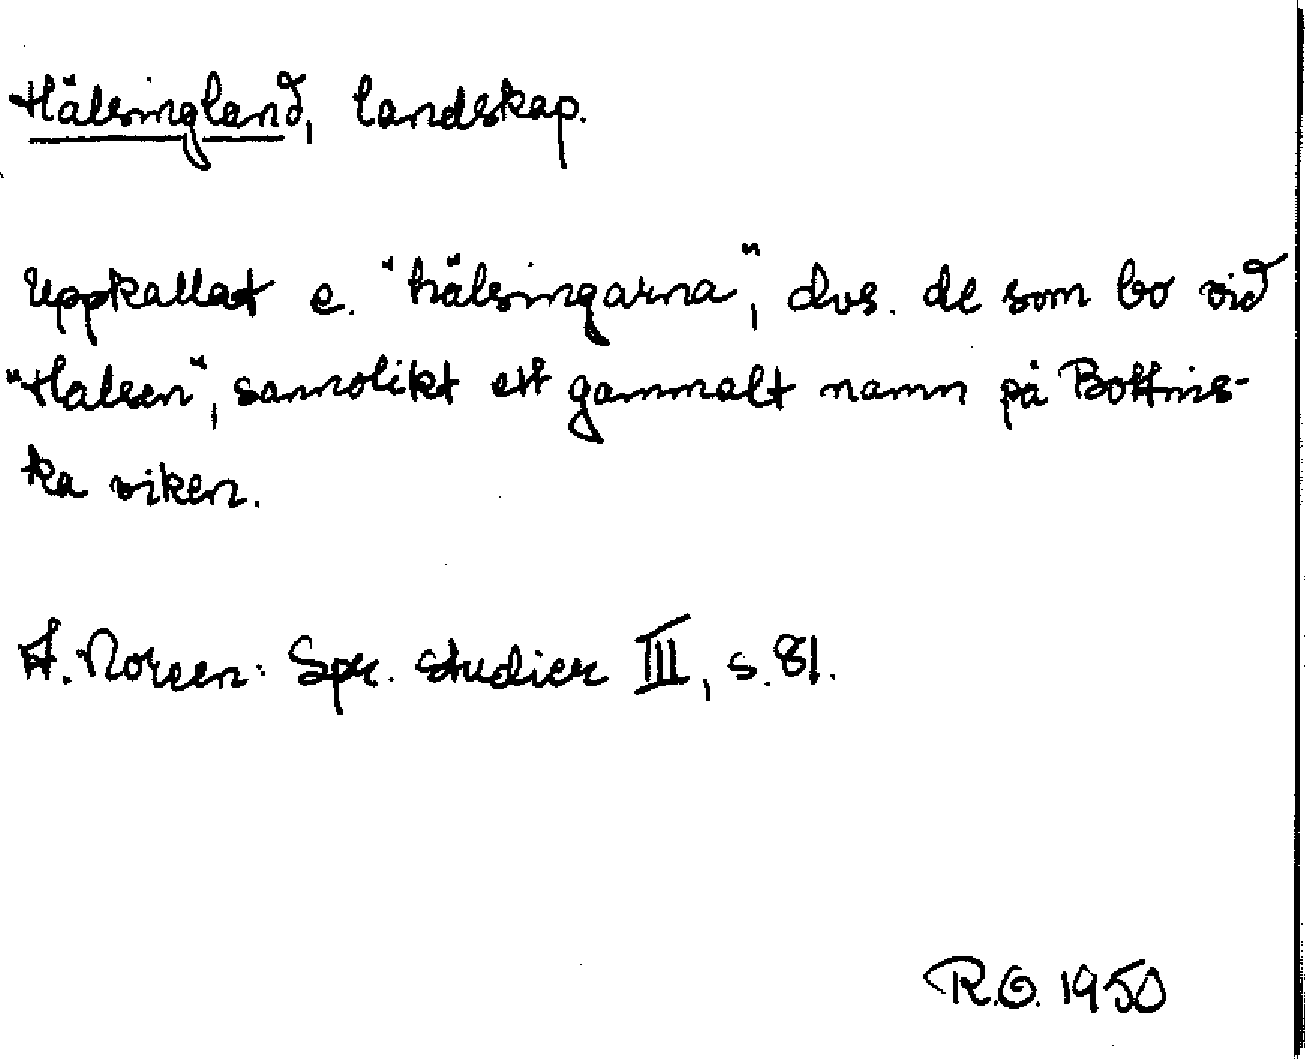 Hälsingland, landskap.
Uppkallat e. "hälsingarna", dvs. de som bo vid
"Halsen", sannolikt ett gammalt namn på Bottnis-
ka viken.
A. Noreen: Spr. studier III, s. 81.
R.O. 1950